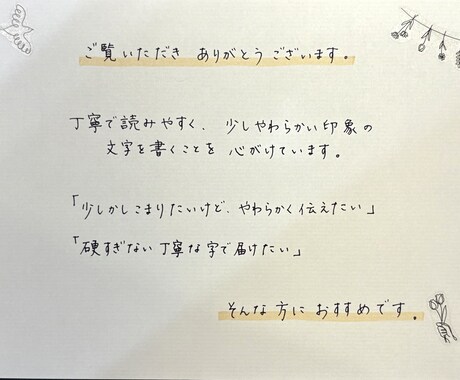 ご覧いただき ありがとうございます。
丁寧で読みやすく、少しやわらかい印象の
文字を書くことを 心がけています。
「少しかしこまりたいけど、やわらかく伝えたい」
「硬すぎない丁寧な字で届けたい」
そんな方に おすすめです。